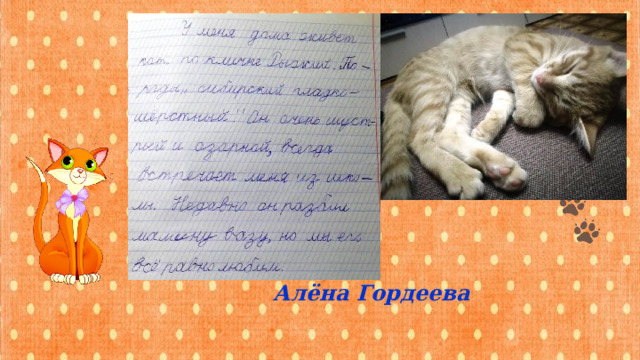 У меня дома живёт
кот по кличке Рыжий. По-
рода, "сибирский гладко-
шерстный". Он очень шуст-
рый и озорной, всегда
встречает меня из шко-
лы. Недавно он разбил
мамину вазу, но мы его
всё равно любим.
Алёна Гордеева